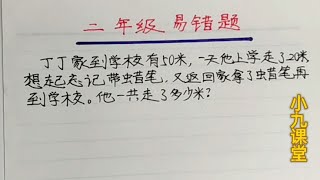 二年级易错题
丁丁家到学校有50米，一天他上学走了20米
想起忘记带蜡笔，又返回家拿了蜡笔再
到学校。他一共走了多少米？
小九课堂